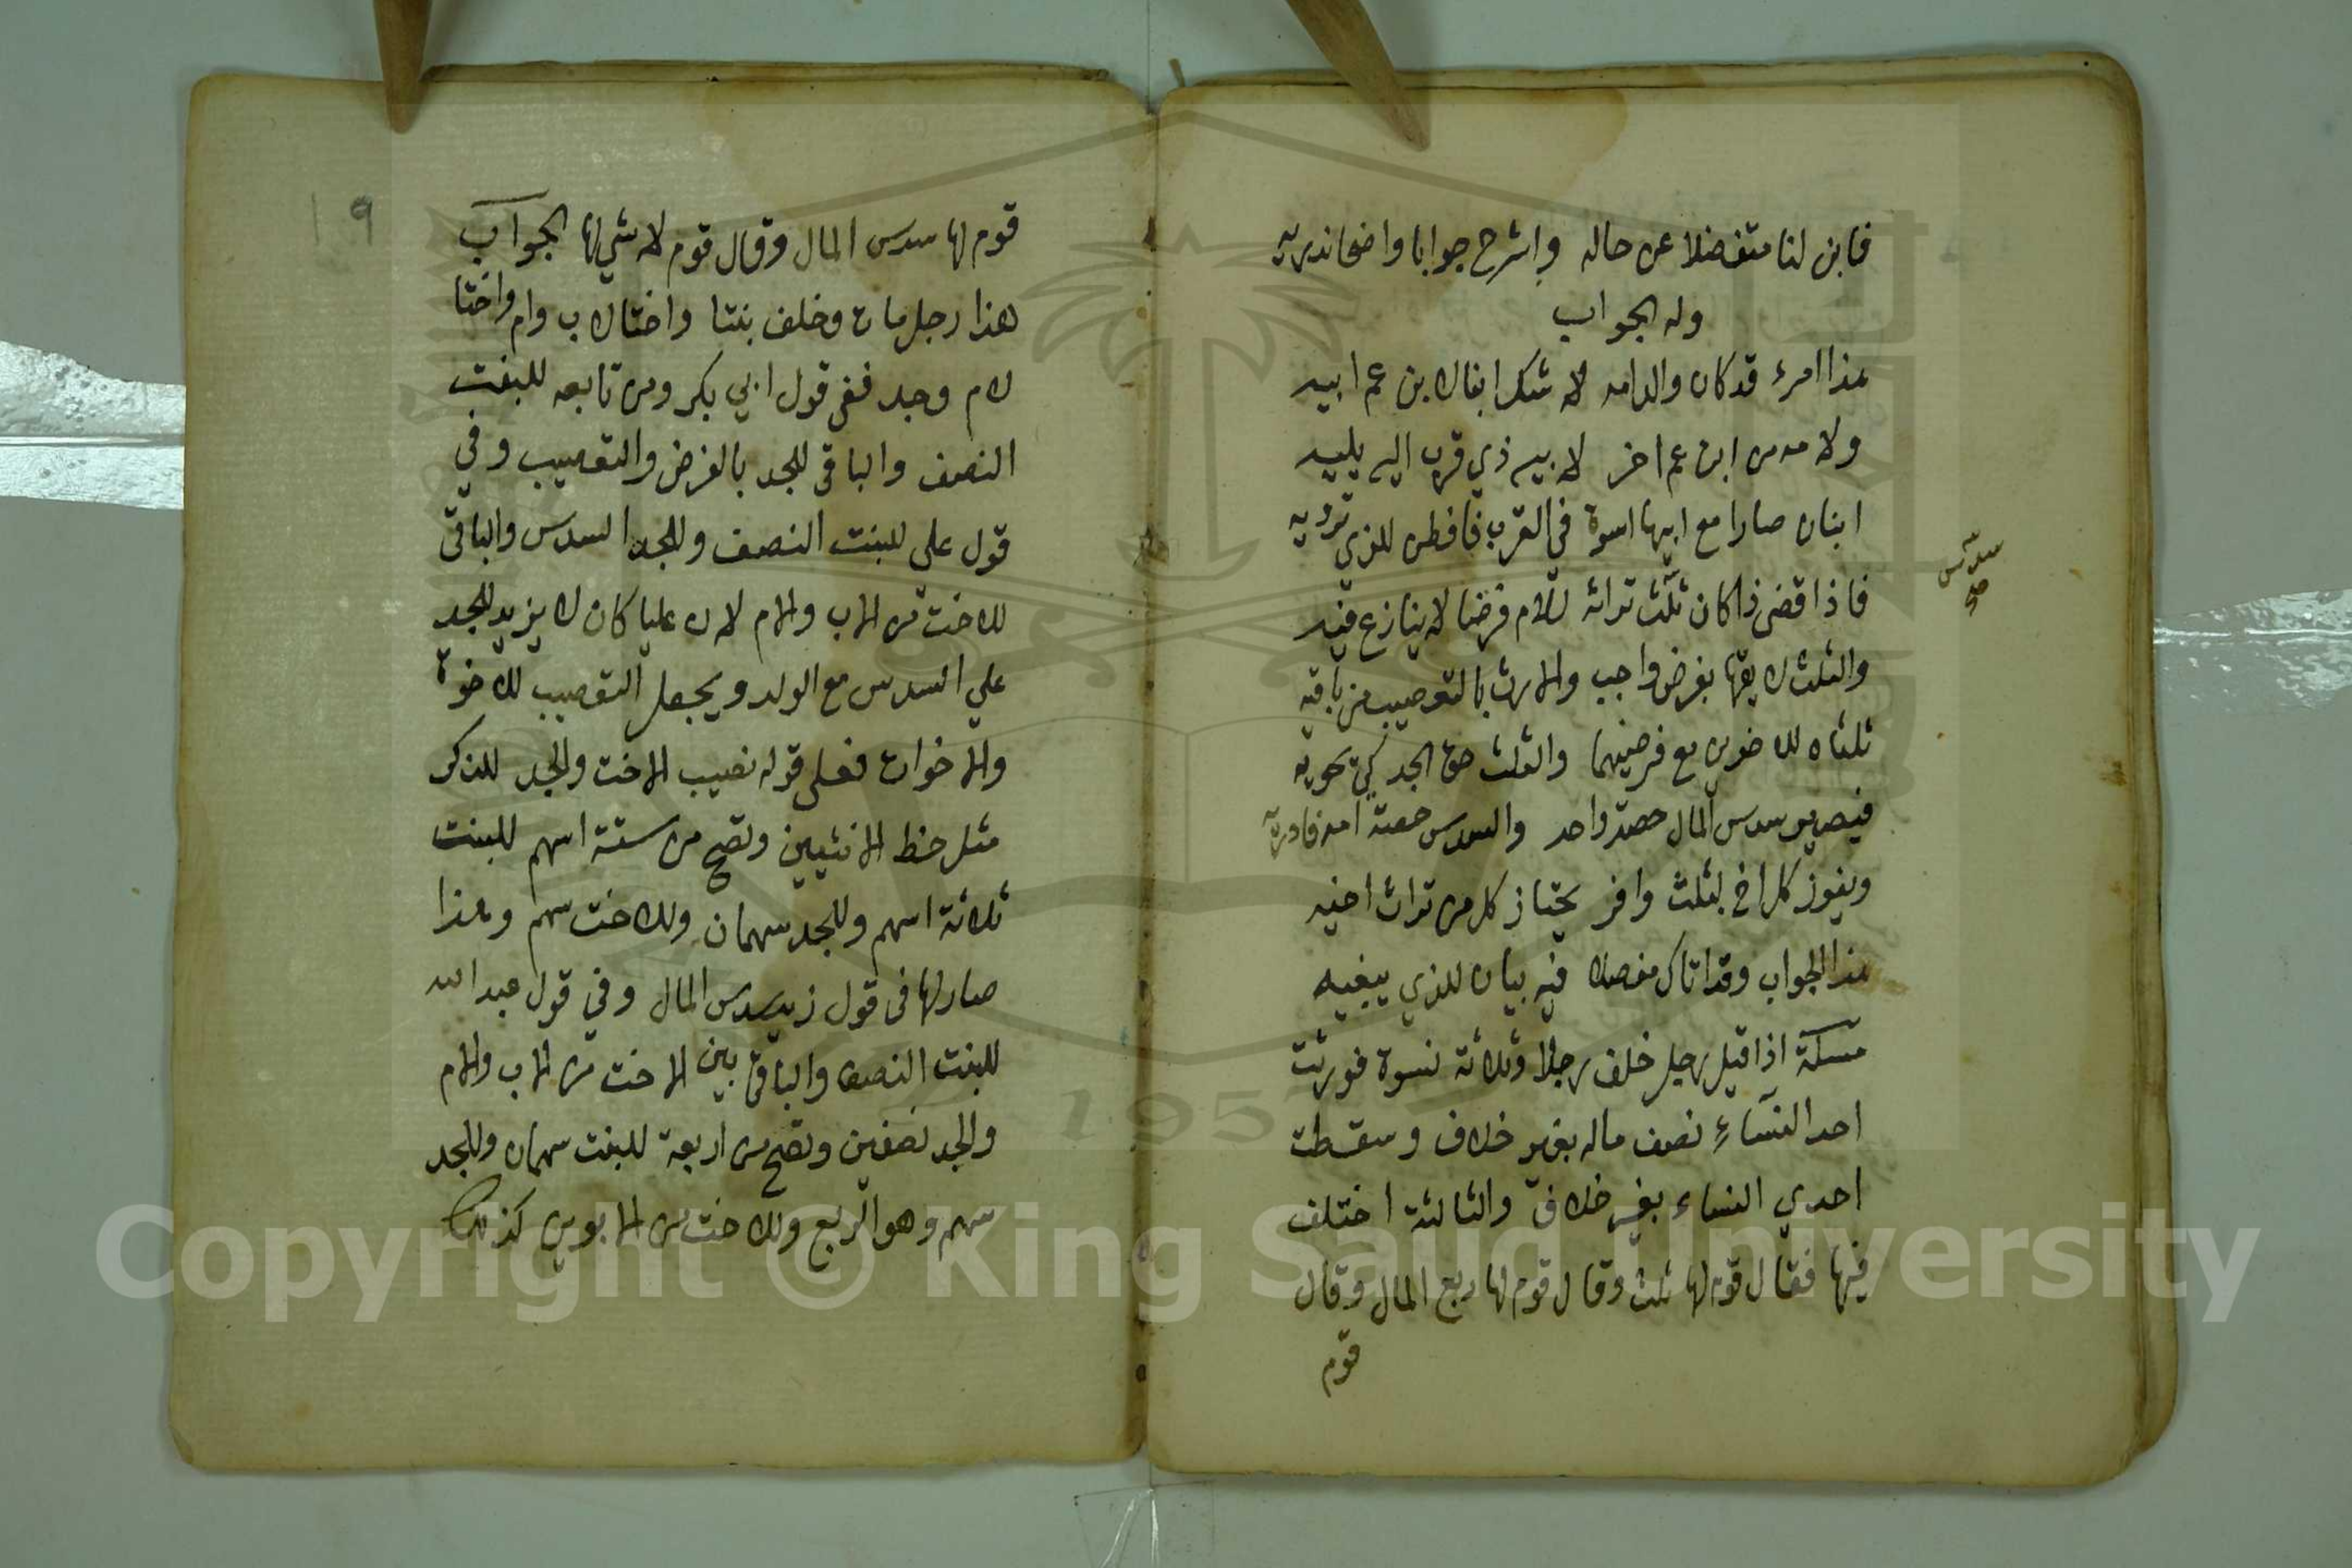 فابن لنا متفضلا عن حاله واشرح جوابا واضحا ندريه
وله الجواب
هذا امرء قد كان والد امه لا شك ابنا لابن عم ابيه
ولامه من ابن عم اخر لابيه ذي قرب اليه يليه
ابنان صارا مع ابيها اسوة في القرب فافطن للذي ترويه
فاذا قضى ذا كان ثلث تراثه للام فرضا لا ينازع فيه
والثلث لابنيها بفرض واجب والارث بالتعصيب من باقيه
ثلثاه للاخوين مع فرضيهما والثلث حق الجد كي يحويه
فيصير سدس المال حصة واحد والسدس حصة امه فادريه
ويفوز كل اخ بثلث وافر يحتاز كل من تراث اخيه
هذا الجواب وقد اتاك مفصلا فيه بيان للذي يبغيه
مسئلة اذا قيل رجل خلف رجلا وثلاثة نسوة فورثت
احد النساء نصف ماله بغير خلاف وسقطت
احدي النساء بغير خلاف والثالثة اختلف
فيها فقال قوم لها ثلث وقال قوم لها ربع المال وقال
قوم
سدس
صح
19
قوم لها سدس المال وقال قوم لا شي لها الجواب
هذا رجل مات وخلف بنتا واختا لاب وام واختا
لام وجد ففي قول ابي بكر ومن تابعه للبنت
النصف والباقي للجد بالفرض والتعصيب وفي
قول علي للبنت النصف وللجد السدس والباقي
للاخت من الاب والام لان عليا كان لا يزيد للجد
علي السدس مع الولد ويجعل التعصيب للاخوة
والاخوات فعلى قوله نصيب الاخت والجد للذكر
مثل حظ الانثيين وتصح من ستة اسهم للبنت
ثلاثة اسهم وللجد سهمان وللاخت سهم وهذا
صار لها في قول زيد سدس المال وفي قول عبد الله
للبنت النصف والباقي بين الاخت من الاب والام
والجد نصفين وتصح من اربعة للبنت سهمان وللجد
سهم وهو الربع وللاخت من الابوين كذلك
Copyright © King Saud University
1957